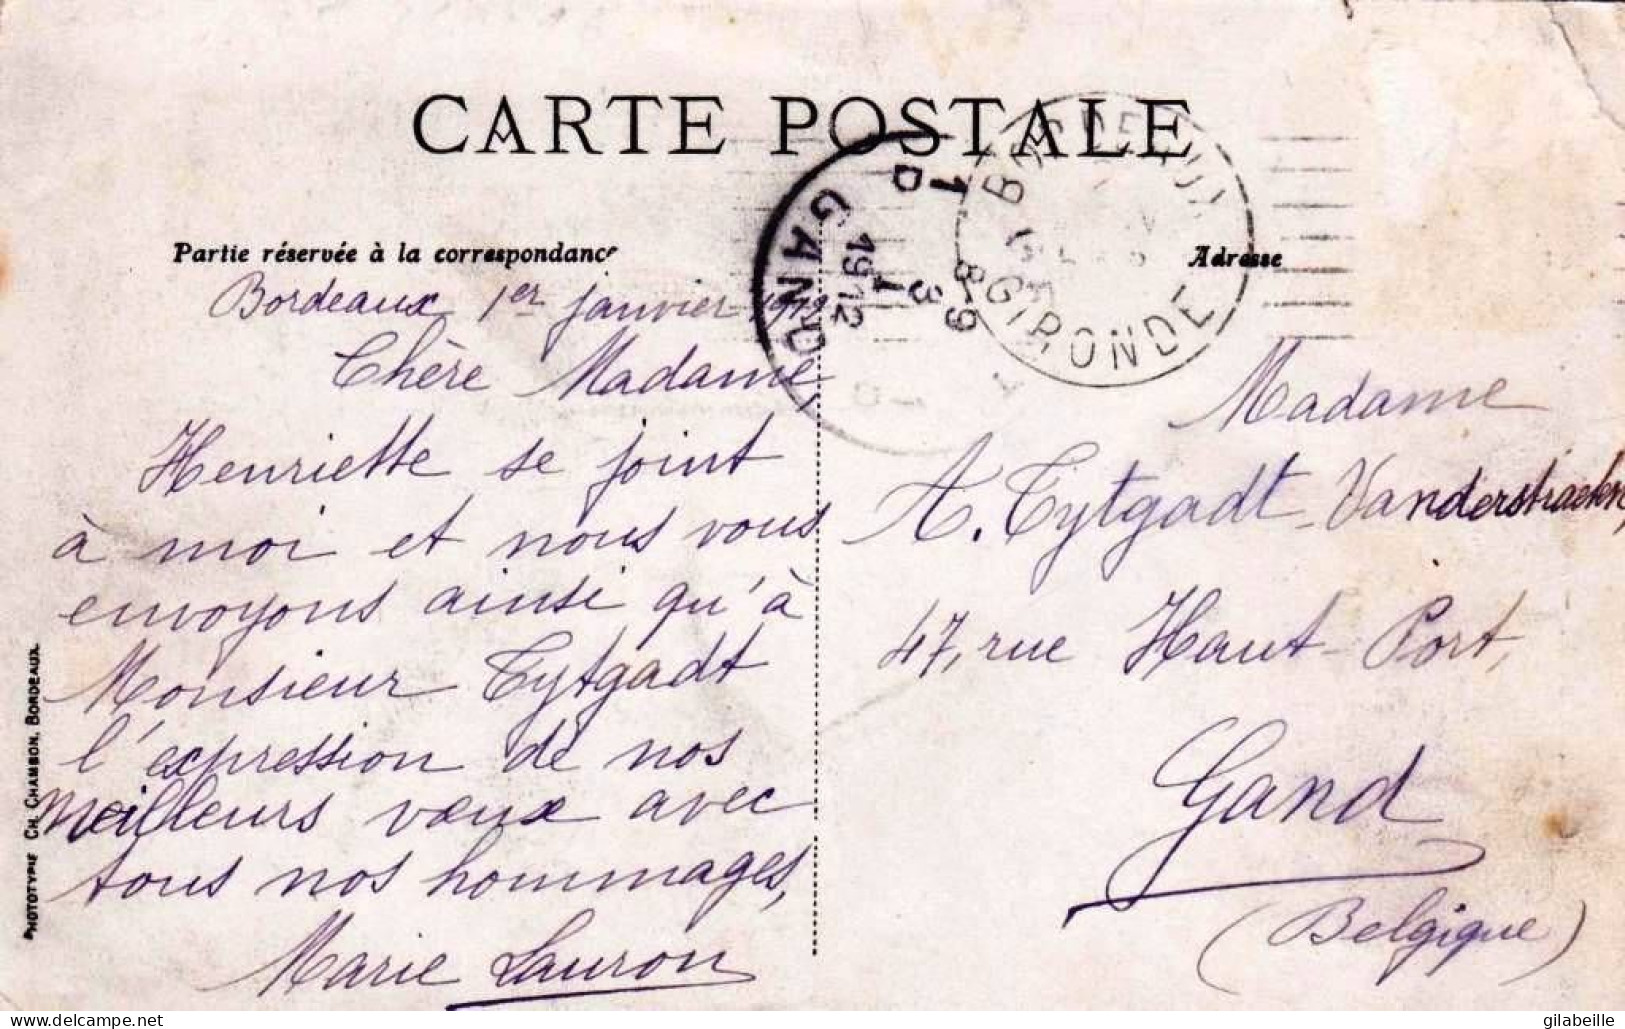 CARTE POSTALE
Partie réservée à la correspondance
Adresse
Bordeaux 1er janvier 1912
Chère Madame
Henriette se joint
à moi et nous vous
envoyons ainsi qu'à
Monsieur Tytgadt
l'expression de nos
meilleurs vœux avec
tous nos hommages,
Marie Lauron
Madame
A. Tytgadt-Vanderstraeten,
47, rue Haut-Port,
Gand
(Belgique)
GAND
1
D
8-9
3
I
1912
BORDEAUX
GIRONDE
PHOTOTYPIE CH. CHAMBON, BORDEAUX
www.delcampe.net
gilabeille